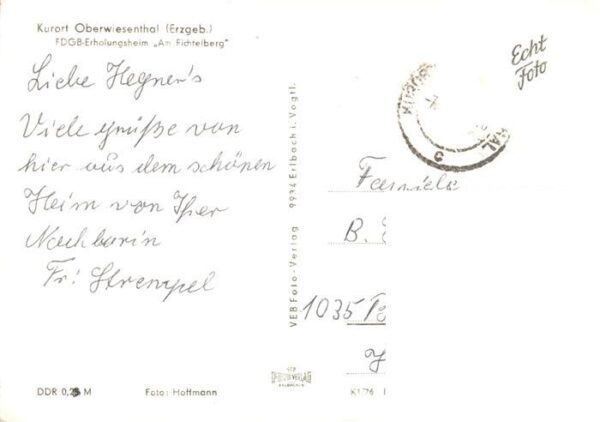 Kurort Oberwiesenthal (Erzgeb.)
FDGB-Erholungsheim „Am Fichtelberg"
Liebe Hegner's
Viele Grüße von
hier aus dem schönen
Heim von Ihrer
Nachbarin
Fr: Strempel
DDR 0,25 M
Foto: Hoffmann
VEB Foto-Verlag 9934 Erlbach i. Vogtl.
Echt
Foto
KURORT
HAL
c
Familie
B.
1035
K1/76